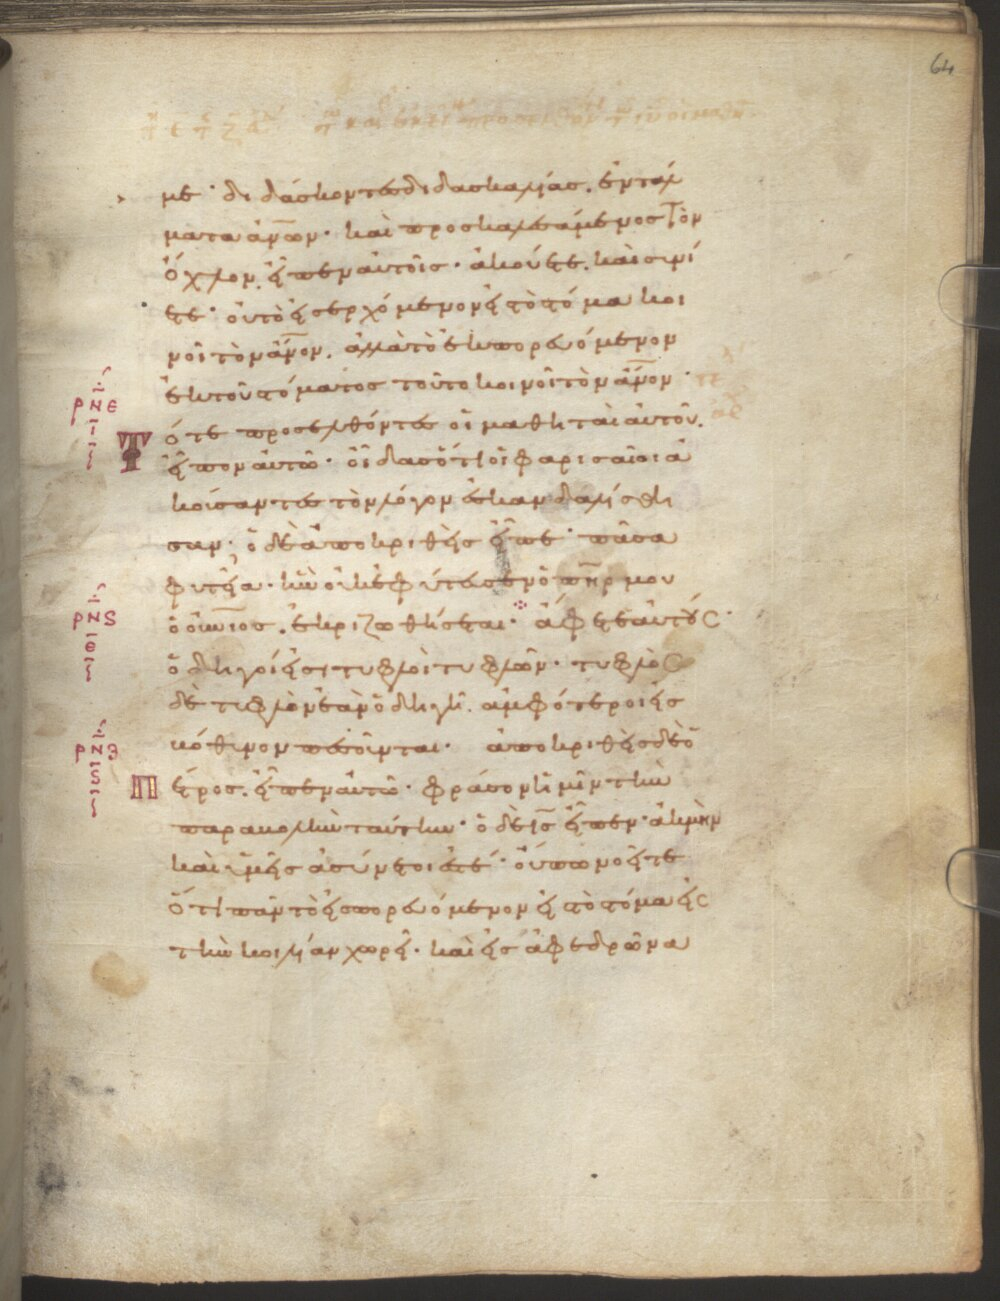 64
με· διδάσκοντες διδασκαλίας. ἐντάλ
ματα ἀν̅ων· καὶ προσκαλεσάμενος τὸν
ὄχλον. εἶπεν αὐτοῖς· ἀκούετε. καὶ συνί
ετε· οὐ τὸ εἰσερχόμενον εἰς τὸ στόμα κοι
νοῖ τὸν ἄν̅ον. ἀλλὰ τὸ ἐκπορευόμενον
ἐκ τοῦ στόματος τοῦτο κοινοῖ τὸν ἄν̅ον·
ρνε
ι
Τότε προσελθόντες οἱ μαθηταὶ αὐτοῦ.
εἶπον αὐτῶ· οἶδας ὅτι οἱ φαρισαῖοι ἀ
κούσαντες τὸν λόγον ἐσκανδαλίσθη
σαν· ὁ δὲ ἀποκριθεὶς εἶπε· πᾶσα
φυτεία· ἣν οὐκ ἐφύτευσεν ὁ π̅η̅ρ μου
ρνς
ε
ὁ οὐ̅νιος. ἐκριζωθήσεται· ἄφετε αὐτούς·
ὁδηγοί εἰσι τυφλοὶ τυφλῶν· τυφλὸς
δὲ τυφλὸν ἐὰν ὁδηγῆ. ἀμφότεροι εἰς
ρνζ
ς
βόθυνον πεσοῦνται· ἀποκριθεὶς δὲ ὁ
Πέτρος. εἶπεν αὐτῶ· φράσον ἡμῖν τὴν
παραβολὴν ταύτην· ὁ δὲ ι̅ς̅ εἶπεν· ἀκμὴν
καὶ ὑμεῖς ἀσύνετοί ἐστέ· οὔπω νοεῖτε
ὅτι πᾶν τὸ εἰσπορευόμενον εἰς τὸ στόμα εἰς
τὴν κοιλίαν χωρεῖ· καὶ εἰς ἀφεδρῶνα